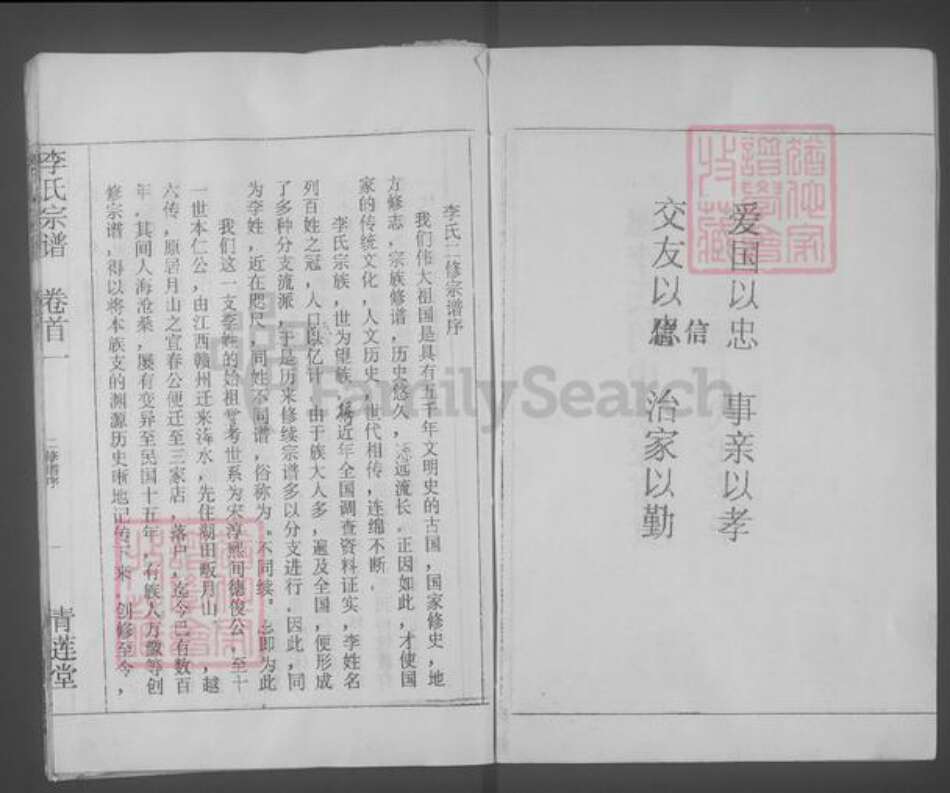 爱国以忠 事亲以孝
交友以信 治家以勤
信
李氏二修宗谱序
我们伟大祖国是具有五千年文明史的古国，国家修史，地
方修志，宗族修谱，历史悠久，源远流长。正因如此，才使国
家的传统文化，人文历史，世代相传，连绵不断．
李氏宗族，世为望族，将近年全国调查资料证实，李姓名
列百姓之冠，人口以亿计，由于族大人多，遍及全国，便形成
了多种分支流派，于是历来修续宗谱多以分支进行．因此，同
为李姓，近在咫尺，同姓不同谱，俗称为“不同续”即为此
我们这一支李姓的始祖考世系为宋淳熙间德俊公，至十
一世本仁公，由江西赣州迁来浠水，先住湖田畈月山，越
六传，原居月山之宜春公便迁至三家店，落户，迄今已有数百
年．其间人海沧桑，屡有变异至民国十五年，有族人万徽等创
修宗谱，得以将本族支的渊源历史晰地记传下来 创修至今，
李氏宗谱 卷首一 二修谱序 一 青莲堂
FamilySearch